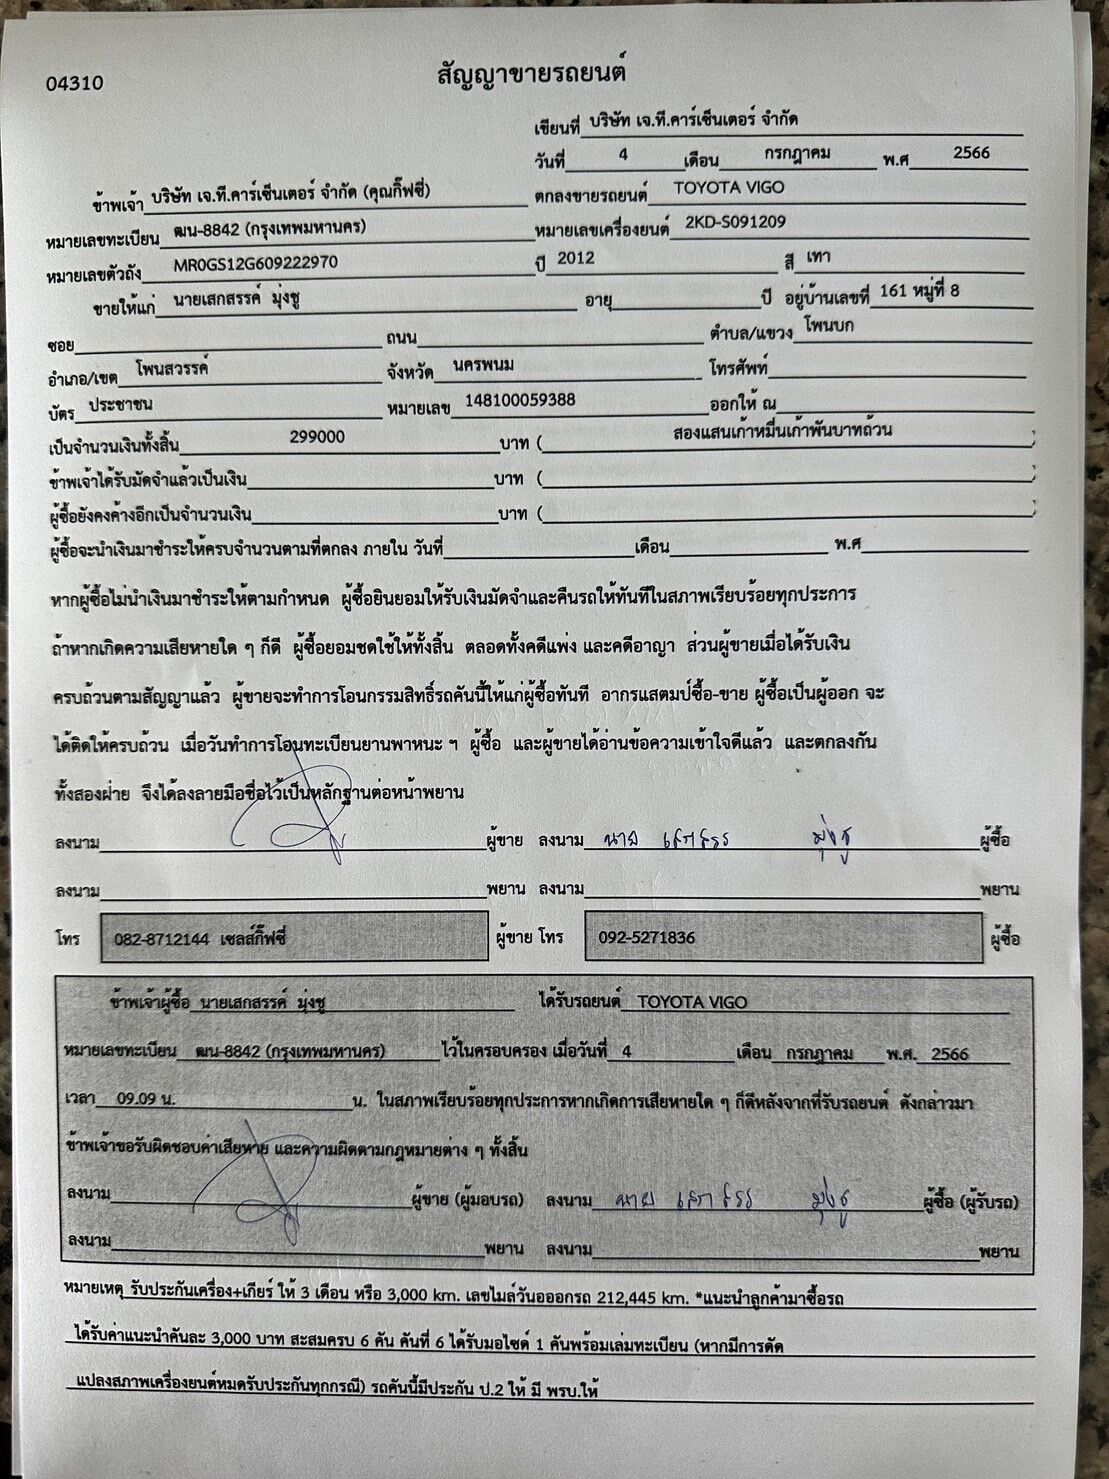 04310
สัญญาขายรถยนต์
เขียนที่ บริษัท เจ.ที.คาร์เซ็นเตอร์ จำกัด
วันที่ 4 เดือน กรกฎาคม พ.ศ 2566
ข้าพเจ้า บริษัท เจ.ที.คาร์เซ็นเตอร์ จำกัด (คุณกิ๊ฟซี่) ตกลงขายรถยนต์ TOYOTA VIGO
หมายเลขทะเบียน ฒน-8842 (กรุงเทพมหานคร) หมายเลขเครื่องยนต์ 2KD-S091209
หมายเลขตัวถัง MR0GS12G609222970 ปี 2012 สี เทา
ขายให้แก่ นายเสกสรรค์ มุ่งชู อายุ ปี อยู่บ้านเลขที่ 161 หมู่ที่ 8
ซอย ถนน ตำบล/แขวง โพนบก
อำเภอ/เขต โพนสวรรค์ จังหวัด นครพนม โทรศัพท์
บัตร ประชาชน หมายเลข 148100059388 ออกให้ ณ
เป็นจำนวนเงินทั้งสิ้น 299000 บาท ( สองแสนเก้าหมื่นเก้าพันบาทถ้วน )
ข้าพเจ้าได้รับมัดจำแล้วเป็นเงิน บาท ( )
ผู้ซื้อยังคงค้างอีกเป็นจำนวนเงิน บาท ( )
ผู้ซื้อจะนำเงินมาชำระให้ครบจำนวนตามที่ตกลง ภายใน วันที่ เดือน พ.ศ
หากผู้ซื้อไม่นำเงินมาชำระให้ตามกำหนด ผู้ซื้อยินยอมให้รับเงินมัดจำและคืนรถให้ทันทีในสภาพเรียบร้อยทุกประการ
ถ้าหากเกิดความเสียหายใด ๆ ก็ดี ผู้ซื้อยอมชดใช้ให้ทั้งสิ้น ตลอดทั้งคดีแพ่ง และคดีอาญา ส่วนผู้ขายเมื่อได้รับเงิน
ครบถ้วนตามสัญญาแล้ว ผู้ขายจะทำการโอนกรรมสิทธิ์รถคันนี้ให้แก่ผู้ซื้อทันที อากรแสตมป์ซื้อ-ขาย ผู้ซื้อเป็นผู้ออก จะ
ได้ติดให้ครบถ้วน เมื่อวันทำการโอนทะเบียนยานพาหนะ ฯ ผู้ซื้อ และผู้ขายได้อ่านข้อความเข้าใจดีแล้ว และตกลงกัน
ทั้งสองฝ่าย จึงได้ลงลายมือชื่อไว้เป็นหลักฐานต่อหน้าพยาน
ลงนาม ผู้ขาย ลงนาม นาย เสกสรร มุ่งชู ผู้ซื้อ
ลงนาม พยาน ลงนาม พยาน
โทร 082-8712144 เซลส์กิ๊ฟซี่ ผู้ขาย โทร 092-5271836 ผู้ซื้อ
ข้าพเจ้าผู้ซื้อ นายเสกสรรค์ มุ่งชู ได้รับรถยนต์ TOYOTA VIGO
หมายเลขทะเบียน ฒน-8842 (กรุงเทพมหานคร) ไว้ในครอบครอง เมื่อวันที่ 4 เดือน กรกฎาคม พ.ศ. 2566
เวลา 09.09 น. น. ในสภาพเรียบร้อยทุกประการหากเกิดการเสียหายใด ๆ ก็ดีหลังจากที่รับรถยนต์ ดังกล่าวมา
ข้าพเจ้าขอรับผิดชอบค่าเสียหาย และความผิดตามกฎหมายต่าง ๆ ทั้งสิ้น
ลงนาม ผู้ขาย (ผู้มอบรถ) ลงนาม นาย เสกสรร มุ่งชู ผู้ซื้อ (ผู้รับรถ)
ลงนาม พยาน ลงนาม พยาน
หมายเหตุ รับประกันเครื่อง+เกียร์ ให้ 3 เดือน หรือ 3,000 km. เลขไมล์วันอออกรถ 212,445 km. *แนะนำลูกค้ามาซื้อรถ
ได้รับค่าแนะนำคันละ 3,000 บาท สะสมครบ 6 คัน คันที่ 6 ได้รับมอไซด์ 1 คันพร้อมเล่มทะเบียน (หากมีการดัด
แปลงสภาพเครื่องยนต์หมดรับประกันทุกกรณี) รถคันนี้มีประกัน ป.2 ให้ มี พรบ.ให้